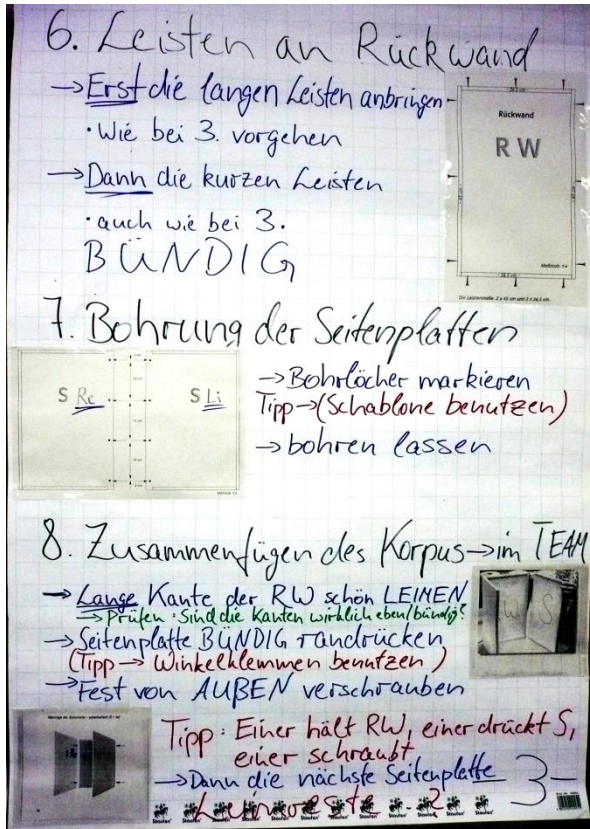 6. Leisten an Rückwand
→ Erst die langen Leisten anbringen
• Wie bei 3. vorgehen
→ Dann die kurzen Leisten
• auch wie bei 3.
BÜNDIG
Rückwand
RW
7. Bohrung der Seitenplatten
S Re
S Li
→ Bohrlöcher markieren
Tipp → (Schablone benutzen)
→ bohren lassen
8. Zusammenfügen des Korpus → im TEAM
→ Lange Kante der RW schön LEIMEN
→ Prüfen • Sind die Kanten wirklich eben/bündig?
→ Seitenplatte BÜNDIG randrücken
(Tipp → Winkelklemmen benutzen)
→ Fest von AUßEN verschrauben
S
Tipp: Einer hält RW, einer drückt S,
einer schraubt
→ Dann die nächste Seitenplatte
-3-